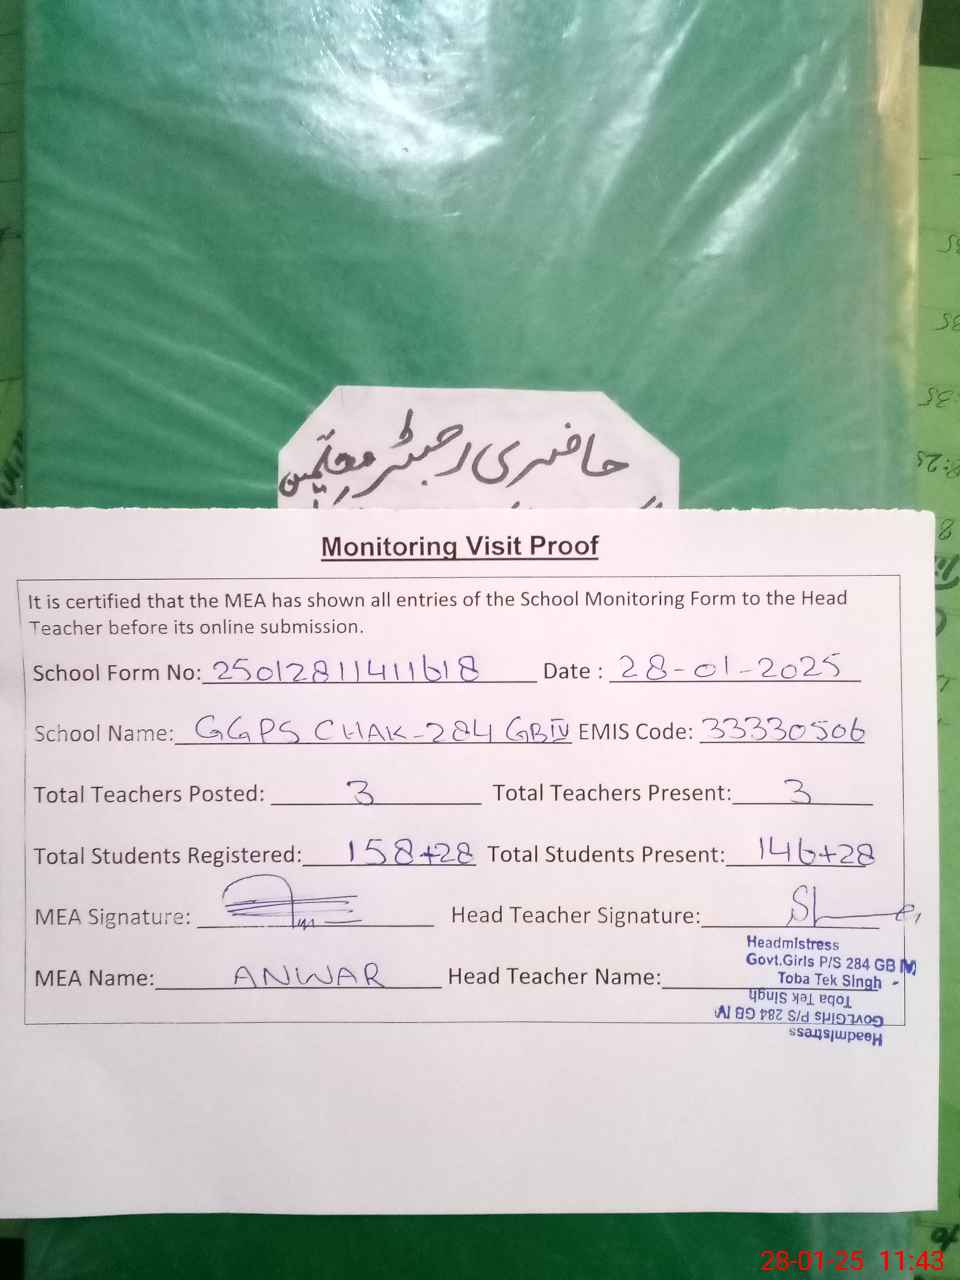 حاضری رجسٹر معلمین
Monitoring Visit Proof
It is certified that the MEA has shown all entries of the School Monitoring Form to the Head
Teacher before its online submission.
School Form No: 25012811411618 Date : 28-01-2025
School Name: GGPS CHAK-284 GB IV EMIS Code: 33330506
Total Teachers Posted: 3 Total Teachers Present: 3
Total Students Registered: 158+28 Total Students Present: 146+28
MEA Signature: Head Teacher Signature:
Headmistress
Govt.Girls P/S 284 GB IV
Toba Tek Singh
MEA Name: ANWAR Head Teacher Name:
Toba Tek Singh
Govt.Girls P/S 284 GB IV
Headmistress
28-01-25 11:43